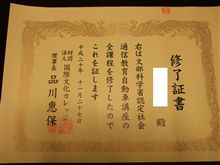 修了証書
殿
右は文部科学省認定社会
通信教育自動車講座の
全課程を修了したので
これを証します
平成二十年十一月二十七日
財団法人 国際文化カレッジ
理事長 品川惠保